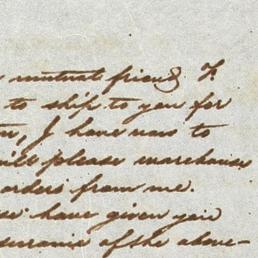 mutual friend F
to ship to you for
I have now to
will please warehouse
orders from me.
have given you
of the above-